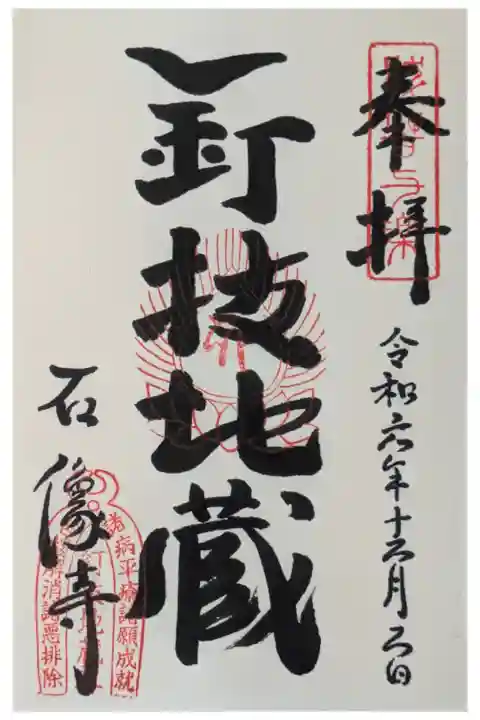 奉拝
令和六年十二月二日
釘抜地蔵
石像寺
病平癒諸願成就
解消諸悪排除